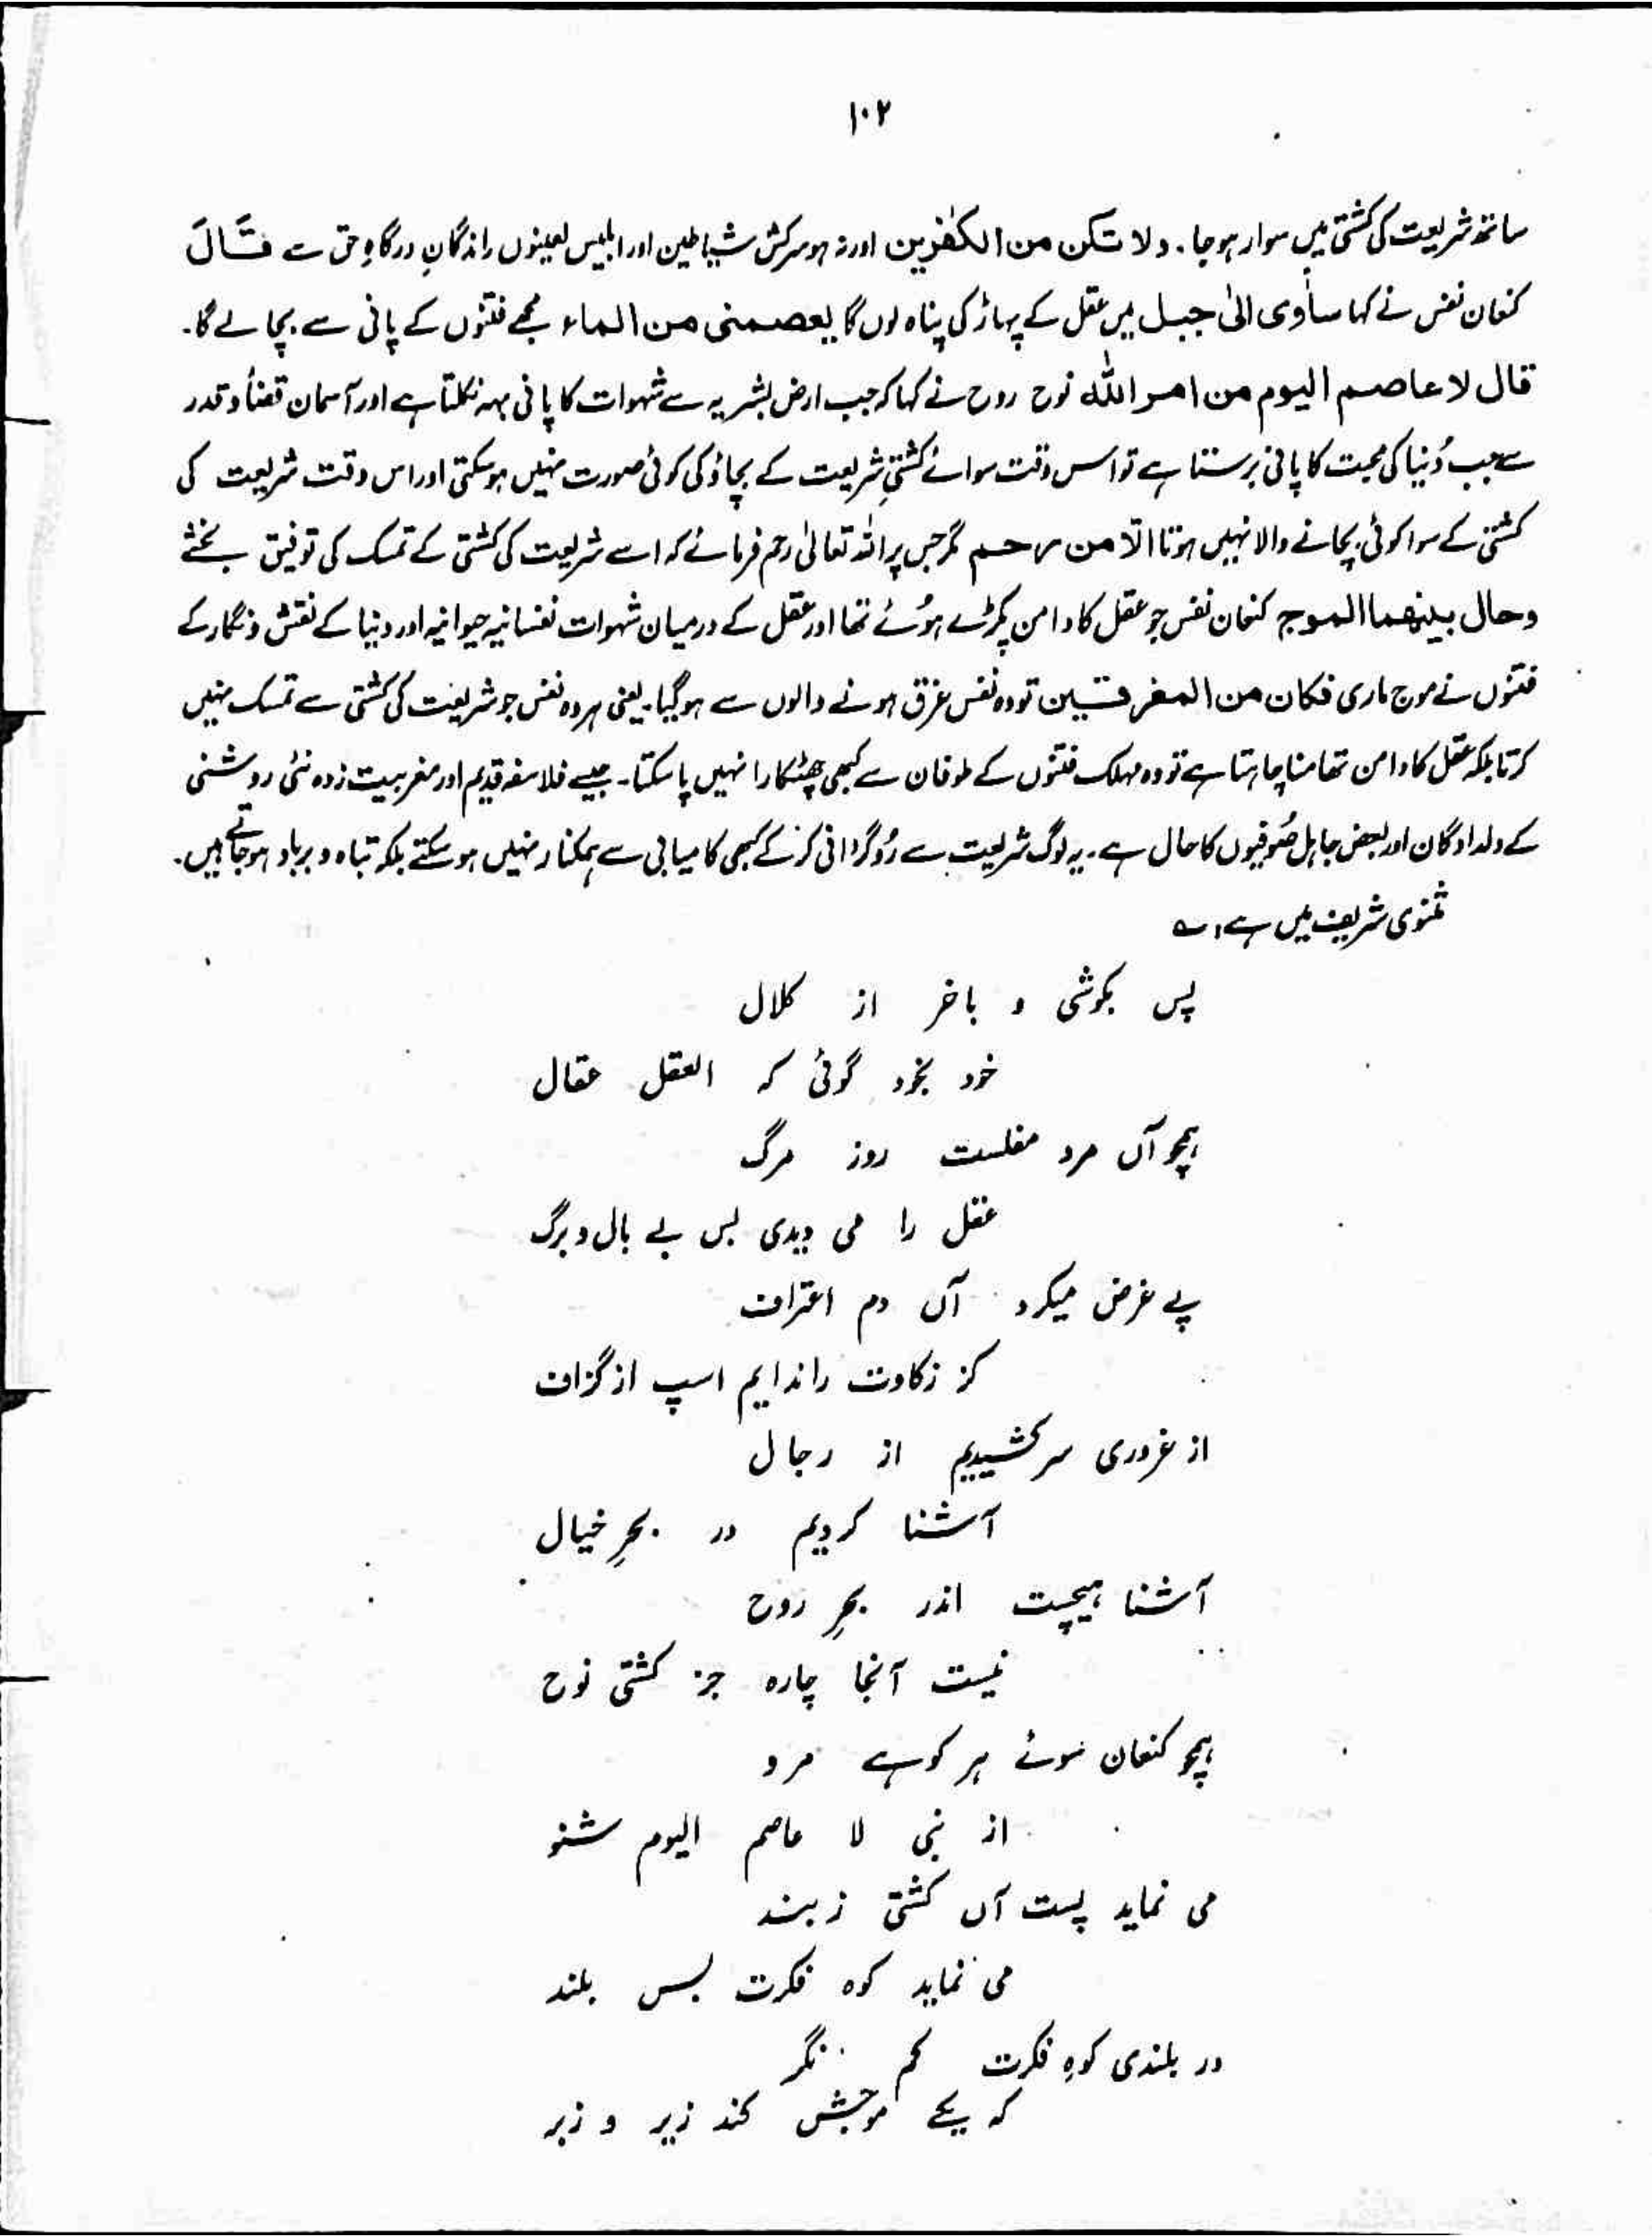 ۱۰۲
ساتھ شریعت کی کشتی میں سوار ہو جا۔ ولا تکن من الکٰفرین اور نہ ہو سرکش شیاطین اور ابلیس لعینوں راندگانِ درگاہِ حق سے قَالَ
کنعان نفس نے کہا ساٰوی الیٰ جبل میں عقل کے پہاڑ کی پناہ لوں گا یعصمنی من الماء مجھے فتنوں کے پانی سے بچا لے گا۔
قال لا عاصم الیوم من امر اللہ نوح روح نے کہا کہ جب ارض بشریہ سے شہوات کا پانی بہہ نکلتا ہے اور آسمان قضأ و قدر
سے جب دُنیا کی محبت کا پانی برستا ہے تو اس وقت سوائے کشتیِ شریعت کے بچاؤ کی کوئی صورت نہیں ہو سکتی اور اس وقت شریعت کی
کشتی کے سوا کوئی بچانے والا نہیں ہوتا الّا من رحم مگر جس پر اللہ تعالیٰ رحم فرمائے کہ اسے شریعت کی کشتی کے تمسک کی توفیق بخشے
وحال بینھما الموج کنعان نفس جو عقل کا دامن پکڑے ہوُئے تھا اور عقل کے درمیان شہوات نفسانیہ حیوانیہ اور دنیا کے نقش و نگار کے
فتنوں نے موج ماری فکان من المغرقین تو وہ نفس غرق ہونے والوں سے ہو گیا۔ یعنی ہر وہ نفس جو شریعت کی کشتی سے تمسک نہیں
کرتا بلکہ عقل کا دامن تھامنا چاہتا ہے تو وہ مہلک فتنوں کے طوفان سے کبھی چھٹکارا نہیں پا سکتا۔ جیسے فلاسفہ قدیم اور مغربیت زدہ نئی روشنی
کے دلدادگان اور بعض جاہل صُوفیوں کا حال ہے۔ یہ لوگ شریعت سے رُوگردانی کر کے کبھی کامیابی سے ہمکنار نہیں ہو سکتے بلکہ تباہ و برباد ہو جاتے ہیں۔
مثنوی شریف میں ہے، ؎
پس بکوشی و باخر از کلال
خود بخود گوئی کہ العقل عقال
ہمچو آں مرد مفلست روز مرگ
عقل را می دیدی بس بے بال و برگ
بے غرض میکرد آں دم اعتراف
کز زکاوت راندایم اسپ از گزاف
از غروری سر کشیدیم از رجال
آشنا کردیم در بحرِ خیال
آشنا ہیچست اندر بحرِ روح
نیست آنجا چارہ جز کشتی نوح
ہمچو کنعان سوئے ہر کوہے مرو
از نبی لا عاصم الیوم شنو
می نماید پست آں کشتی زبند
می نماید کوہ فکرت بس بلند
در بلندی کوہِ فکرت کم نگر
کہ یکے موجش کند زیر و زبر